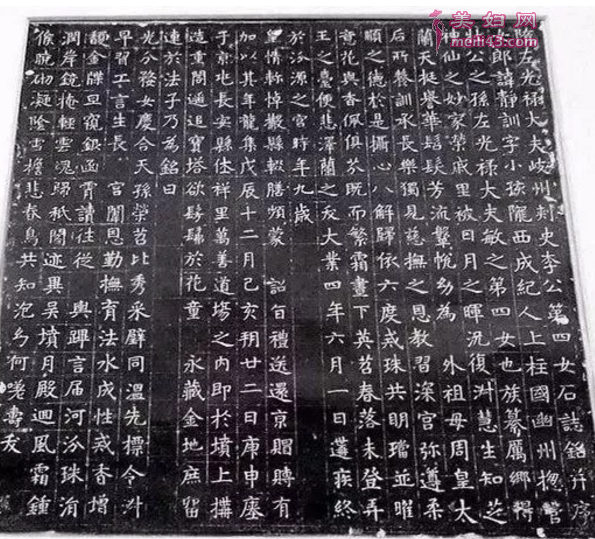 隋左光祿大夫岐州刺史李公第四女石誌銘并序
女郎諱靜訓字小孩隴西成紀人上柱國幽州揔管
壯公之孫左光祿大夫敏之第四女也族纂厲鄉得
神仙之妙家榮戚里被日月之暉況復淑慧生知芝
蘭天挺譽華髫髮芳流鞶帨幼為 外祖母周皇太
后所養訓承長樂獨見慈撫之恩教習深宮弥遵柔
順之德於是攝心八解歸依六度戒珠共明璫並曜
意花與香佩俱芬既而繁霜晝下英苕春落未登弄
玉之臺便悲澤蘭之夭大業四年六月一日遘疾終
於汾源之宮時年九歲
皇情軫悼撤縣輟膳頻蒙 詔旨禮送還京賵賻有
加以其年龍集戊辰十二月己亥朔廿二日庚申塟
于京兆長安縣休祥里萬善道場之內即於墳上搆
造重閣遙追寶塔欲髣髴於花童 永藏金地庶留
連於法子乃為銘曰
光分婺女慶合天孫榮苕比秀采璧同溫先標令淑
早習工言生長 宮闈恩勤撫育法水成性戒香增
馥金牒旦窺銀函霄讀往從 輿蹕言届河汾珠涓
潤岸鏡掩輕雲魄歸祇閣迹異吳墳月殿迴風霜鍾
候曉砌凝陰雪檐悲春鳥共知泡幻何嗟壽夭
美妇网
meifu43.com